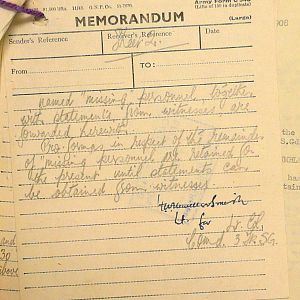 Army Form C 348
MEMORANDUM
(Large)
Sender's Reference
Receiver's Reference
Date
Sheet 2.
FROM:
TO:
named "missing" personnel, together
with statements from witnesses, are
forwarded herewith.
Pro formas in respect of the remainder
of missing personnel are retained for
the present until statements can
be obtained from witnesses.
Lt. for Lt. Col.
Comd. 3
and
30
above